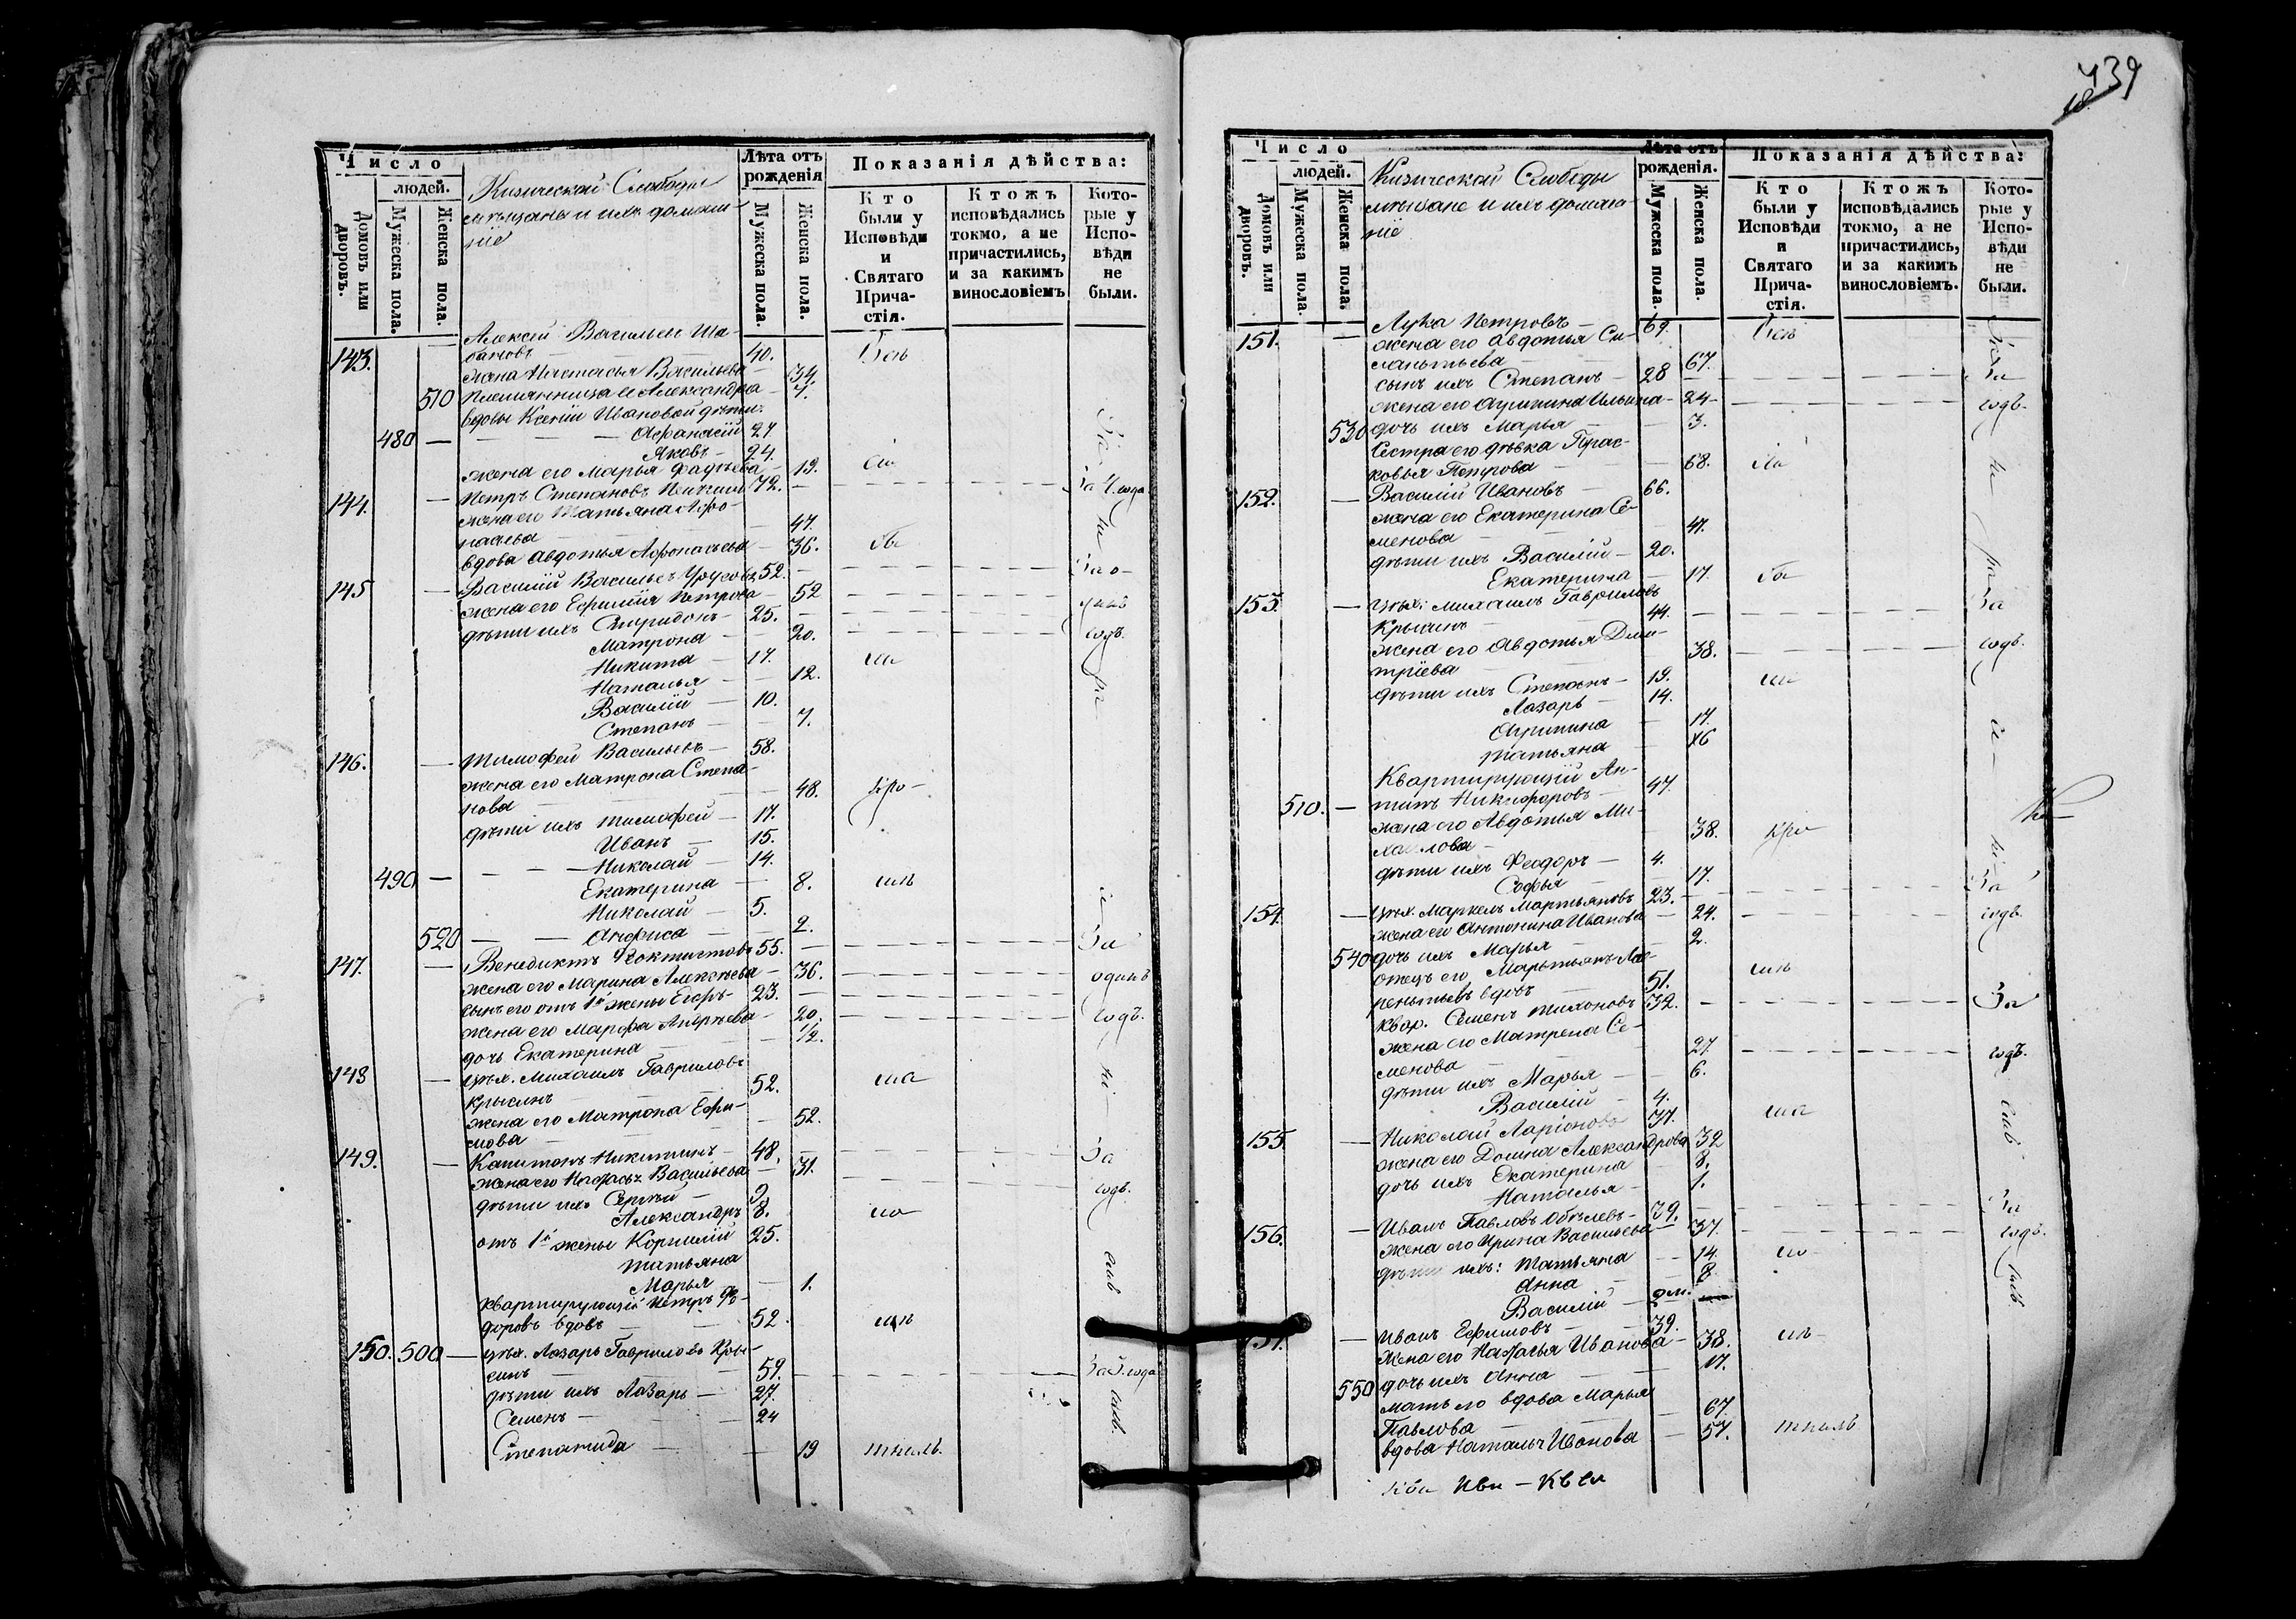 439
Число
людей.
Домовъ или дворовъ.
Мужеска пола.
Женска пола.
Кизической Слободы
мѣщаны и ихъ домаш-
ніе
Лѣта отъ рожденія
Мужеска пола.
Женска пола.
Показанія дѣйства:
Кто были у Исповѣди и Святаго Прича-стія.
Ктожъ исповѣдались токмо, а не причастились, и за какимъ винословіемъ
Кото-рые у Испо-вѣди не были.
Алексей Васильевъ Ша-
143. бановъ — 40.
жена Настасья Васильева 34
510 племянница ея Александра 7.
вдовы Ксеніи Ивановой дѣти:
480 — Афанасій 27
Яковъ — 24.
жена его Марья Фадѣева — 19.
144. — Петръ Степановъ 72. — За 4. года
жена его Татьяна Афо-
насьева — 47.
вдова Авдотья Афонасьева — 36.
145 — Василій Васильевъ Урусовъ 52. — За о-
жена его Ефимія Петрова — 52 — динъ
дѣти ихъ Спиридонъ — 25. — годъ.
Матрона — 20.
Никита — 17.
Наталья — 12.
Василій — 10.
Степанъ — 7.
146. — Тимофей Васильевъ — 58.
жена его Матрона Степа-
нова — 48.
дѣти ихъ Тимофей — 17.
Иванъ — 15.
— Николай — 14.
490 — Екатерина — 8.
Николай — 5.
520 — Анфиса — 2.
147. — Венедиктъ Феоктистовъ 55. — За
жена его Марина Алексѣева — 36. — одинъ
сынъ его отъ 1й жены Егоръ — 23. — годъ.
жена его Марфа Андрѣева — 20.
дочь Екатерина — 1/2.
148 — цех. Михаилъ Гавриловъ
Крысинъ — 52.
жена его Матрона Ефи-
мова — 52.
149. — Капитонъ Никитинъ — 48. — За
жена его Настасья Васильева — 31. — годъ.
дѣти ихъ Сергѣй — 9
Александръ 8.
отъ 1й жены Корнилій 25.
Татьяна
Марья — 1.
квартирующій Петръ Фе-
доровъ вдовъ — 52.
150. 500 — цех. Лазарь Гавриловъ Кры-
синъ — 59. — За 3. года
дѣти ихъ Лазарь — 27.
Семенъ — 24
Степанида — 19
Число
людей.
Домовъ или дворовъ.
Мужеска пола.
Женска пола.
Кизической Слободы
мѣщане и ихъ домаш-
ніе
Лѣта отъ рожденія.
Мужеска пола.
Женска пола.
Показанія дѣйства:
Кто были у Исповѣди и Святаго Прича-стія.
Ктожъ исповѣдались токмо, а не причастились, и за какимъ винословіемъ.
Кото-рые у Испо-вѣди не были.
151. — Лука Петровъ — 69.
жена его Авдотья Си-
лантьева — 67.
сынъ ихъ Степанъ — 28 — За
жена его Агрипина Ильина — 24 — годъ.
530 дочь ихъ Марья — 3.
Сестра его дѣвка Парас-
ковья Петрова — 68.
152. — Василій Ивановъ — 66.
жена его Екатерина Се-
менова — 47.
дѣти ихъ Василій — 20.
Екатерина — 17.
153. — цех: Михаилъ Гавриловъ
Крысинъ — 44. — За
жена его Авдотья Дми-
тріева — 38. — годъ.
дѣти ихъ Степанъ — 19.
Лазарь — 14.
Агрипина — 17.
Татьяна — 16
Квартирующій Ан-
510. — типъ Никифоровъ — 47.
жена его Авдотья Ми-
хаилова — 38.
дѣти ихъ Феодоръ — 4.
Софья — 17.
154. — цех. Маркелъ Мартьяновъ 23. — За
жена его Антонина Иванова — 24. — годъ.
540 дочь ихъ Марья — 2.
отецъ его Мартьянъ Лав-
рентьевъ вдовъ — 51.
квар. Семенъ Тихоновъ 32. — За
жена его Матрена Се-
менова — 27. — годъ.
дѣти ихъ Марья — 6.
Василій — 4.
155. — Николай Ларіоновъ 37.
жена его Домна Александрова 32
дочь ихъ Екатерина — 8.
Наталья — 1.
156. — Иванъ Павловъ 39. — За
жена его Ирина Васильева — 37. — годъ.
дѣти ихъ: Татьяна — 14.
Анна — 8
Василій —
157. — Иванъ Ефимовъ — 39.
Жена его Настасья Иванова — 38.
550 дочь ихъ Анна — 17.
мать его вдова Марья
Павлова — 67.
вдова Наталья Иванова — 57.